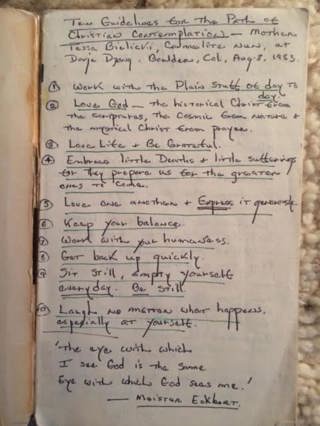 Ten Guidelines for the Path of
Christian Contemplation — Mother
Tessa Bielicki, Carmelite Nun, at
Dorje Dzong - Boulder, Col, Aug. 8. 1983.
① Work with the Plain Stuff of day to
day.
② Love God — the historical Christ from
the scriptures, the Cosmic from Nature &
the mystical Christ from prayer.
③ Love Life & Be Grateful.
④ Embrace little Deaths & little sufferings
for they prepare us for the greater
ones to come.
⑤ Love one another & Express it generously.
⑥ Keep your balance.
⑦ Work with your humanness.
⑧ Get back up quickly.
⑨ Sit still, empty yourself
everyday. Be Still
⑩ Laugh no matter what happens,
especially at yourself.
'The eye with which
I see God is the same
Eye with which God sees me.'
— Meister Eckhart.